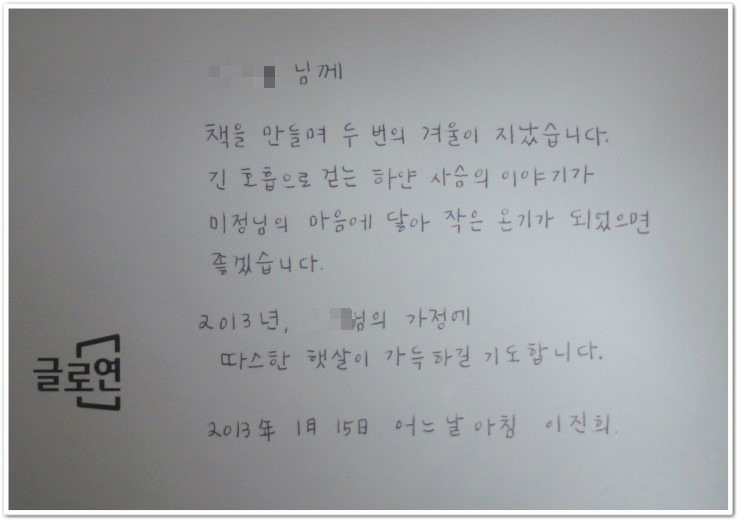 님께
책을 만들며 두 번의 겨울이 지났습니다.
긴 호흡으로 걷는 하얀 사슴의 이야기가
미정님의 마음에 닿아 작은 온기가 되었으면
좋겠습니다.
2013년, 님의 가정에
따스한 햇살이 가득하길 기도합니다.
글로연
2013年 1月 15日 어느날 아침 이진희.